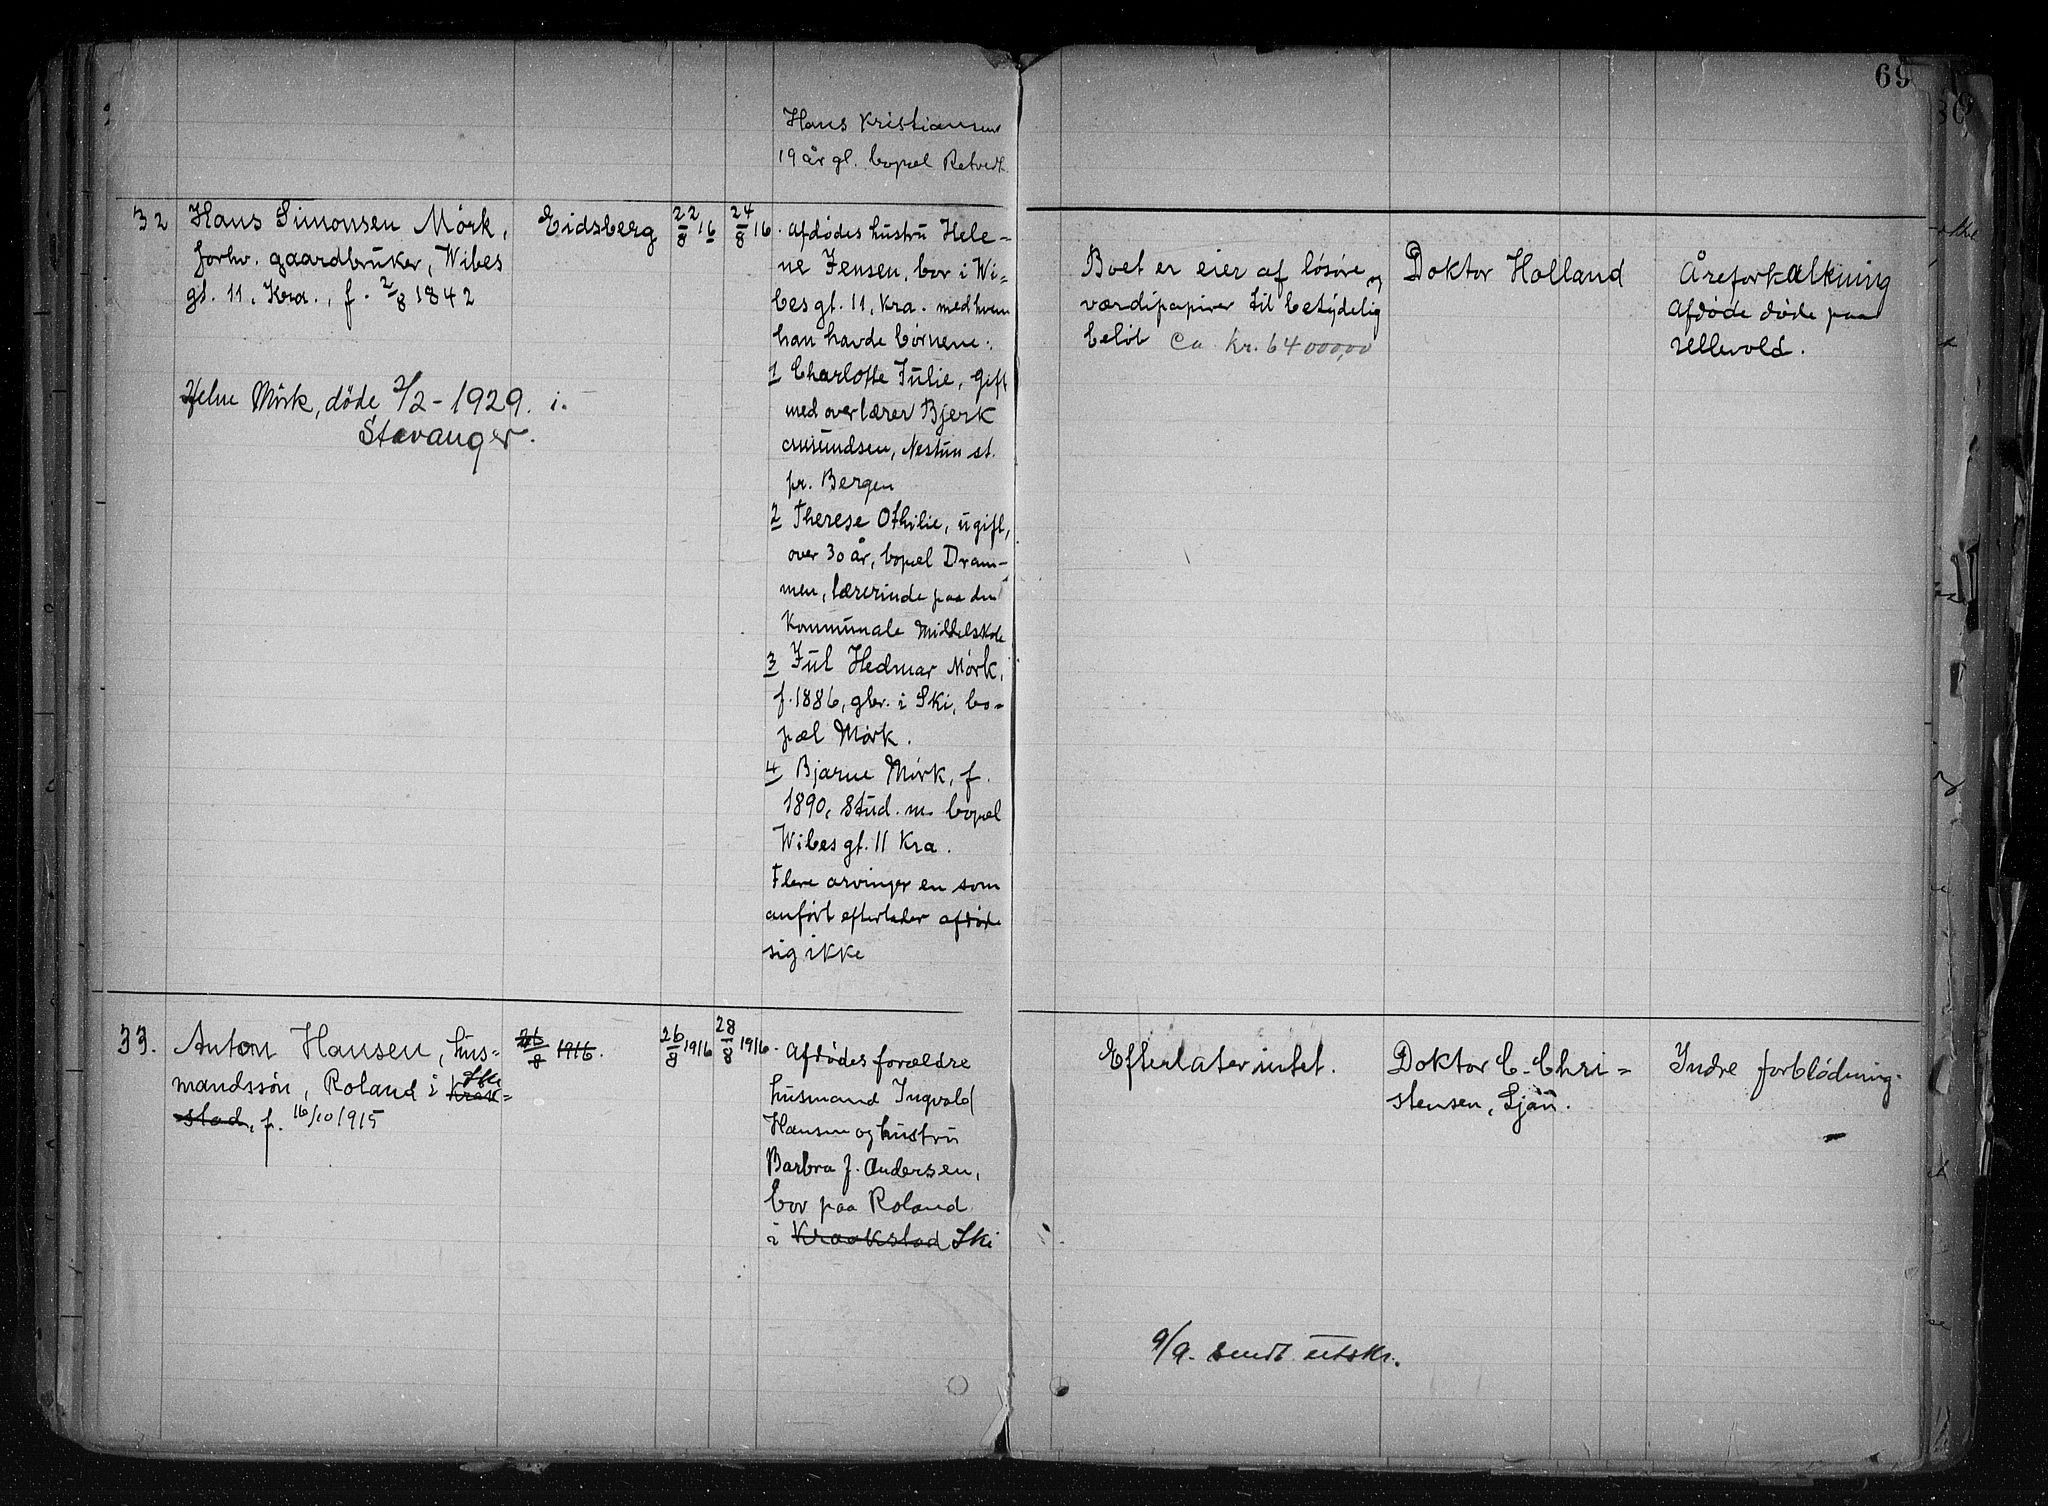 69
Hans Kristiansen
19 år gl. bopæl Retvedt
32
Hans Simonsen Mörk,
forhv. gaardbruker, Wibes
gt. 11, Kra., f. 2/8 1842
Helene Mörk, døde 2/2-1929. i.
Stavanger.
Eidsberg
22/8 16
24/8 16.
Afdødes hustru Hele=
ne Jensen, bor i Wi=
bes gt. 11, Kra. med hvem
han havde børnene:
1 Charlotte Julie, gift
med overlærer Bjerk
Nestun st.
pr. Bergen
2 Therese Othilie, ugift,
over 30 år, bopæl Dram-
men, lærerinde paa den
Kommunale Middelskole
3 Jul Hedmar Mørk,
f. 1886, gbr. i Ski, bo-
pæl Mörk.
4 Bjarne Mørk, f.
1890, Stud. m. bopæl
Wibes gt. 11 Kra.
Flere arvinger en som
anført efterlader afdøde
sig ikke
Boet er eier af løsøre og
værdipapirer til betydelig
beløb Ca kr. 64000,00
Doktor Holland
Åreforkalkning
Afdøde døde paa
Ullevold.
33.
Anton Hansen, hus=
mandssøn, Roland i Krak= Ski
stad, f. 16/10 1915
26/8 1916.
26/8 1916
28/8 1916.
Afdødes forældre
husmand Ingvald
Hansen og hustru
Barbra f. Andersen,
bor paa Roland
i Kraakstad Ski
Efterlater intet.
Doktor C. Chri=
stensen, Ljan.
Indre forblödning.
9/9. sendt utskr.